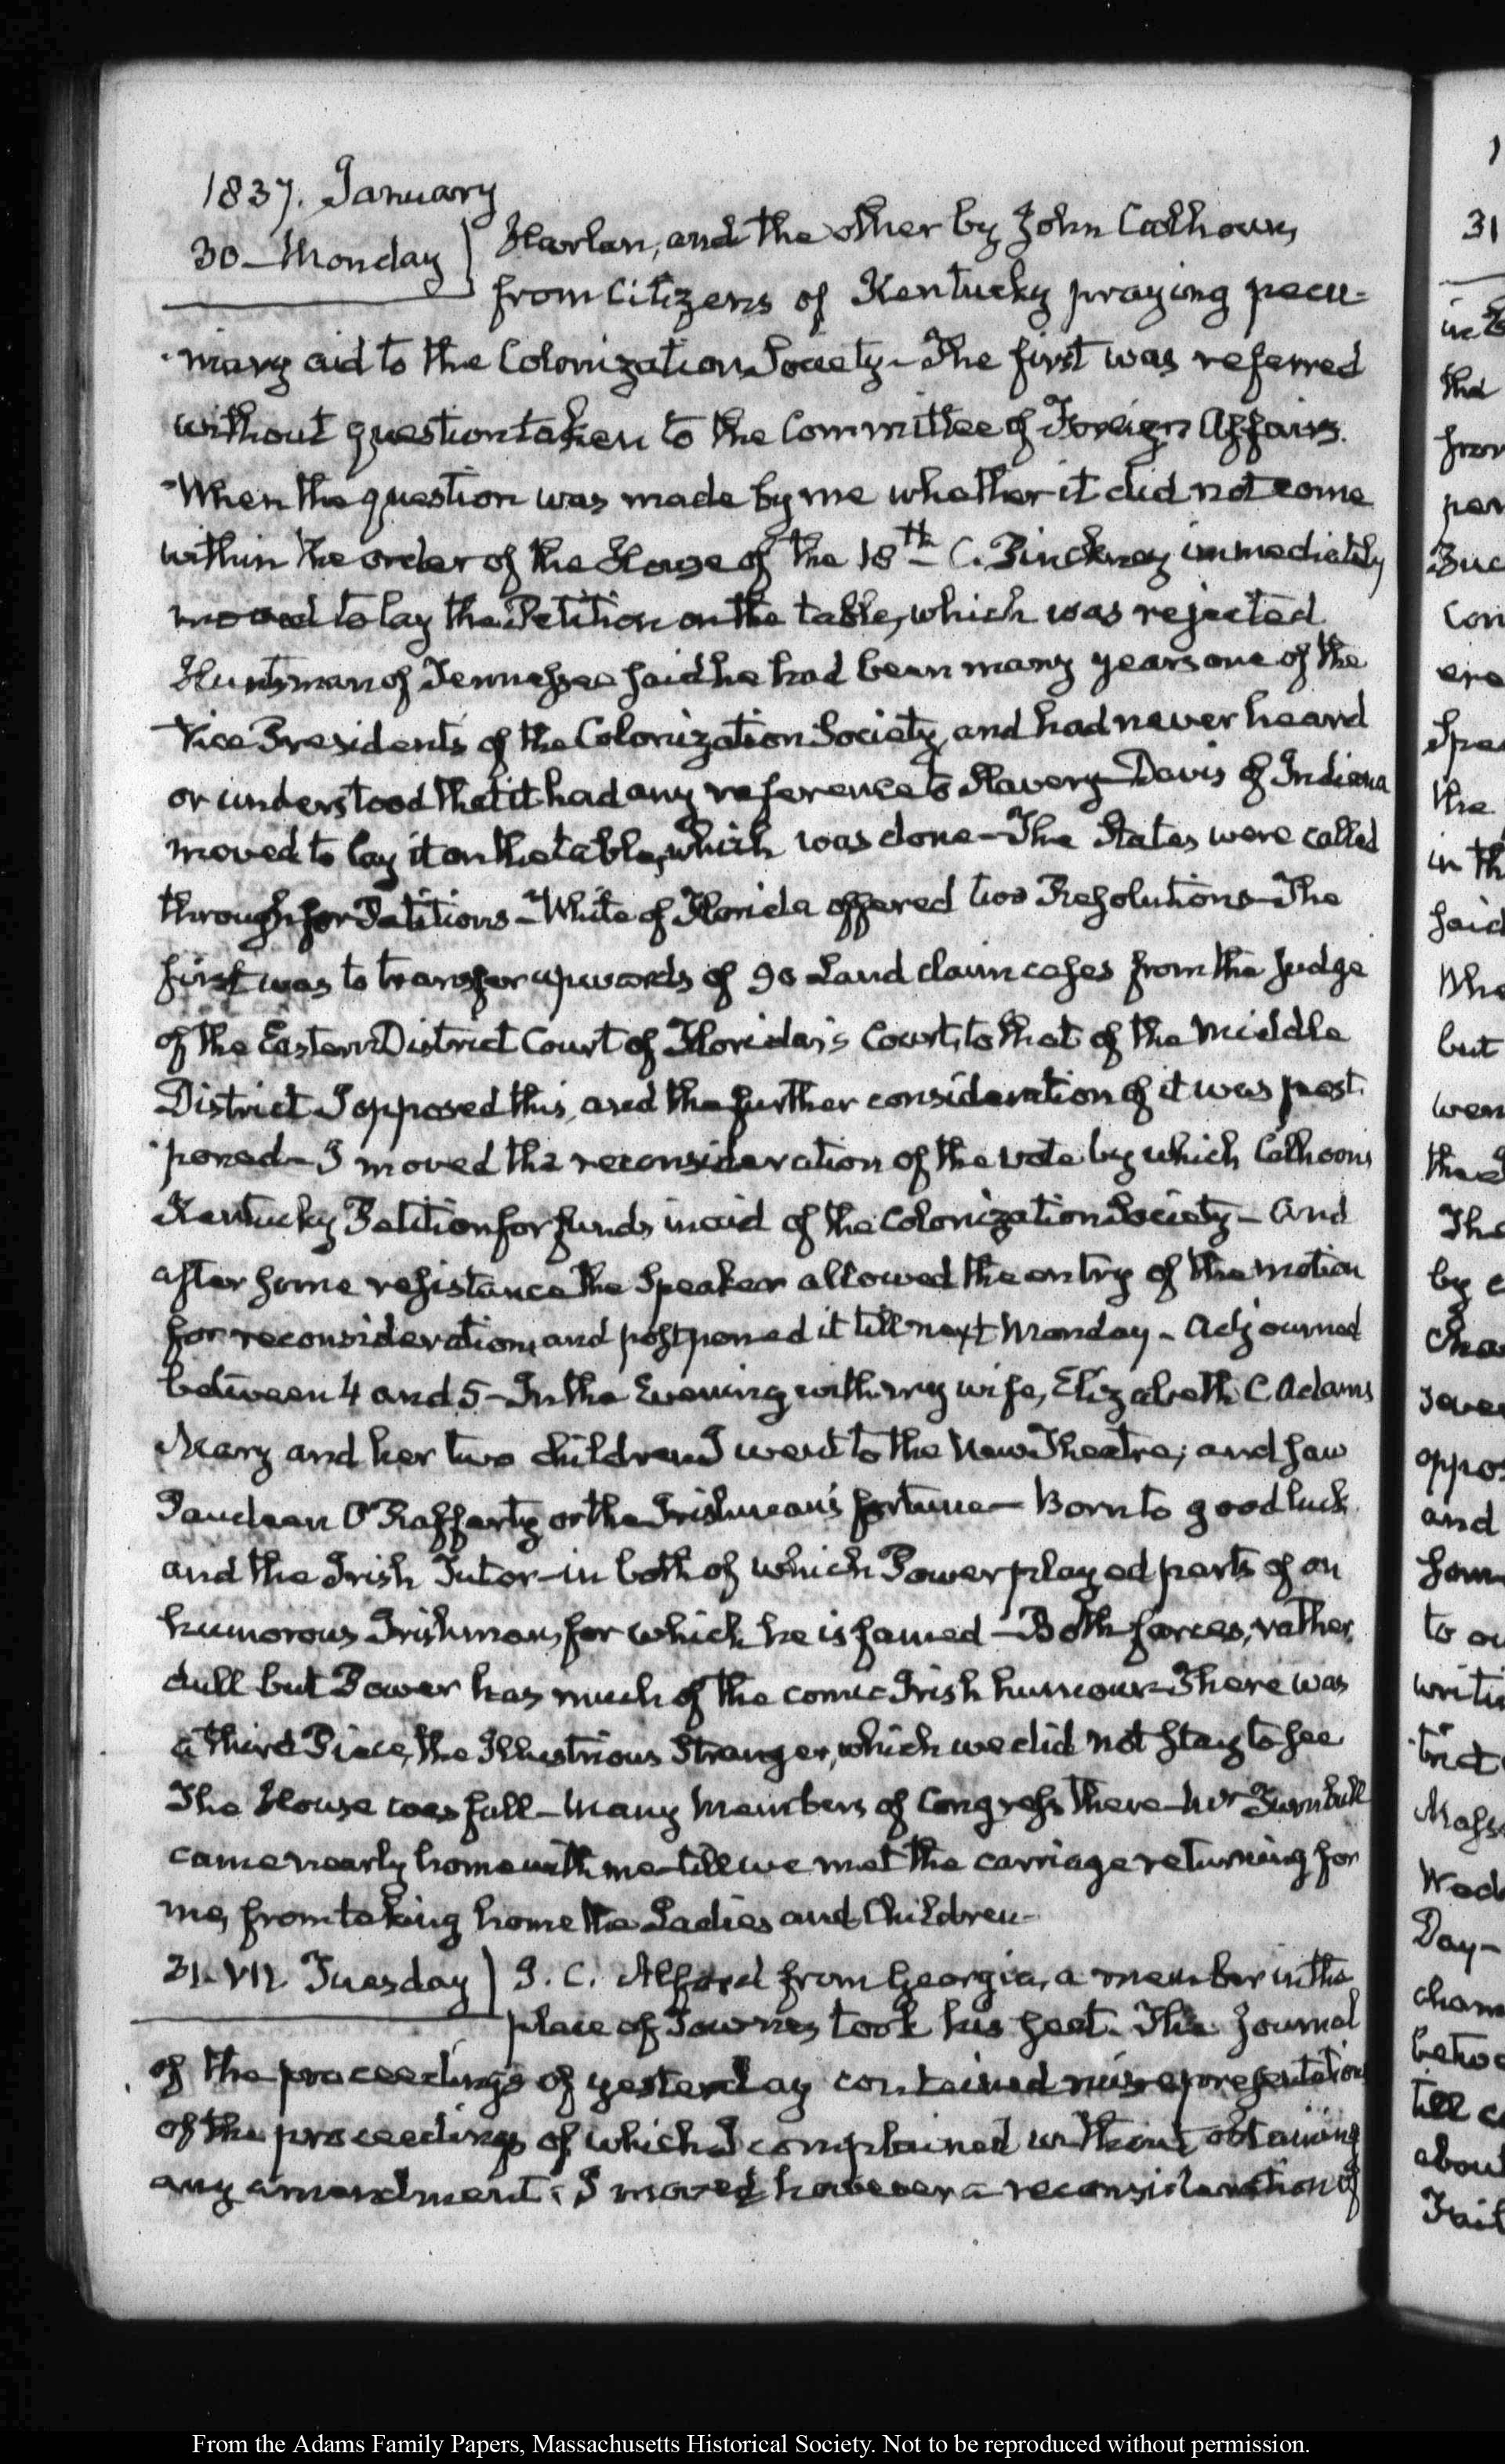 1837. January
30 - Monday } Harlan, and the other by John Calhoun,
from Citizens of Kentucky praying pecu-
niary aid to the Colonization Society - The first was referred
without question taken to the Committee of Foreign Affairs.
When the question was made by me whether it did not come
within the order of the House of the 18th C. Pinckney immediately
moved to lay the Petition on the table, which was rejected
Huntsman of Tennessee said he had been many years one of the
Vice Presidents of the Colonization Society, and had never heard
or understood that it had any reference to Slavery - Davis of Indiana
moved to lay it on the table, which was done - The States were called
through for Petitions - White of Florida offered two Resolutions - The
first was to transfer upwards of 90 Land claim cases from the Judge
of the Eastern District Court of Florida's Court, to that of the Middle
District I opposed this, and the further consideration of it was post-
poned - I moved the reconsideration of the vote by which Calhoon's
Kentucky Petition for funds in aid of the Colonization Society - And
after some resistance the Speaker allowed the entry of the motion
for reconsideration, and postponed it till next Monday - Adjourned
between 4 and 5 - In the Evening with my wife, Elizabeth C. Adams
Mary and her two children I went to the New Theatre; and saw
O'Rafferty or the Irishman's fortune - Born to good luck
and the Irish Tutor - in both of which Power played parts of an
humorous Irishman, for which he is famed - Both farces, rather
dull but Power has much of the comic Irish humour - There was
a third Piece, the Illustrious Stranger, which we did not stay to see
The House was full - Many Members of Congress there - Mr Turnbull
came nearly home with me - till we met the carriage returning for
me, from taking home the Ladies and Children -
31. VII. Tuesday } J. C. Alford from Georgia, a member in the
place of Townes took his seat. The Journal
of the proceedings of yesterday contained misrepresentations
of the proceedings of which I complained without obtaining
any amendment. I moved however a reconsideration of
1
31
in
the
from
per
Buc
Con
ere
Spea
the
in th
said
Whe
but
wer
the
The
by
Cha
seve
oppos
and
som
to ou
writi
trict
Mass
Wed
Day -
cham
betwe
till c
about
Tait
From the Adams Family Papers, Massachusetts Historical Society. Not to be reproduced without permission.